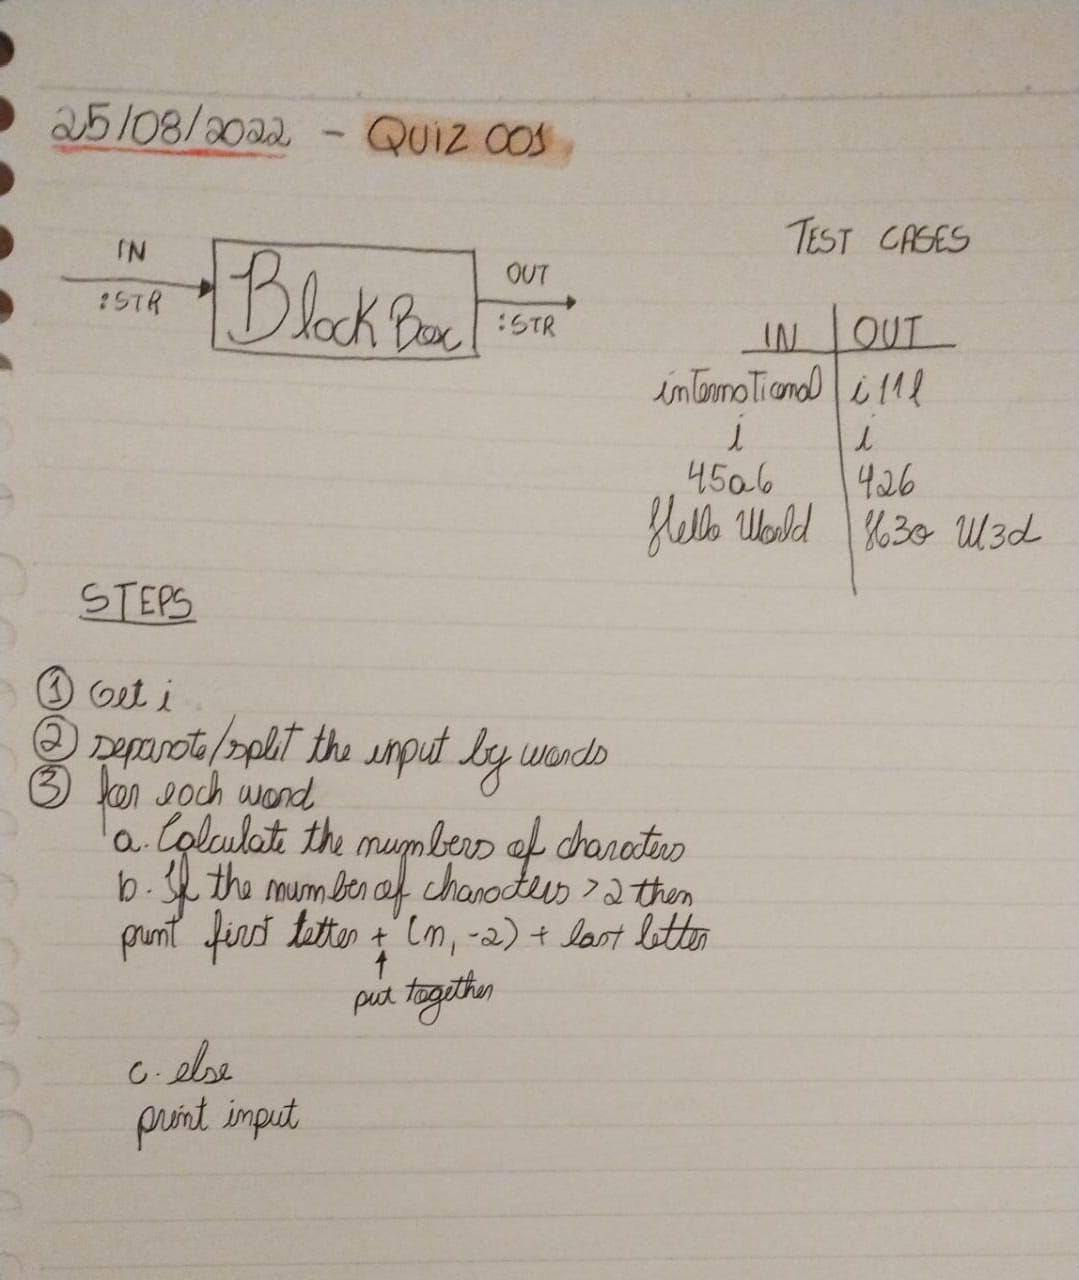 25/08/2022 - QUIZ 001
IN
:STR
Black Box
OUT
:STR
TEST CASES
IN OUT
international i11l
i i
45a6 426
Hello World H3o W3d
STEPS
1 Get i
2 separate/split the input by words
3 for each word
a. Calculate the numbers of characters
b. If the number of characters >2 then
print first letter + (n, -2) + last letter
↑
put together
c. else
print input